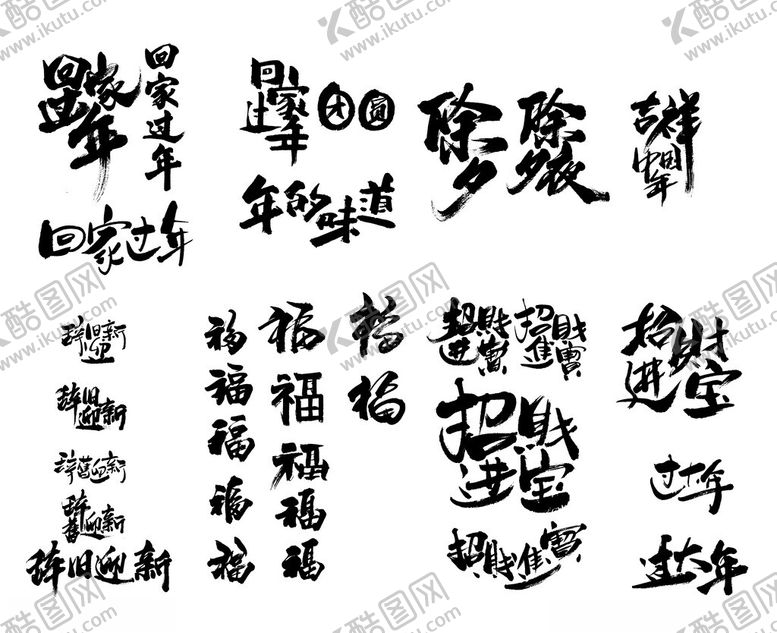 回家过年
回家过年
回家过年
回家过年
团圆
年的味道
除夕
除夕夜
吉祥
中国年
辞旧迎新
辞旧迎新
辞舊迎新
辞舊迎新
辞旧迎新
福
福
福
福
福
福
福
福
福
福
福
福
招財进寶
招財進寶
招財进宝
招財進寶
招财进宝
过大年
过大年
酷图网
www.ikutu.com